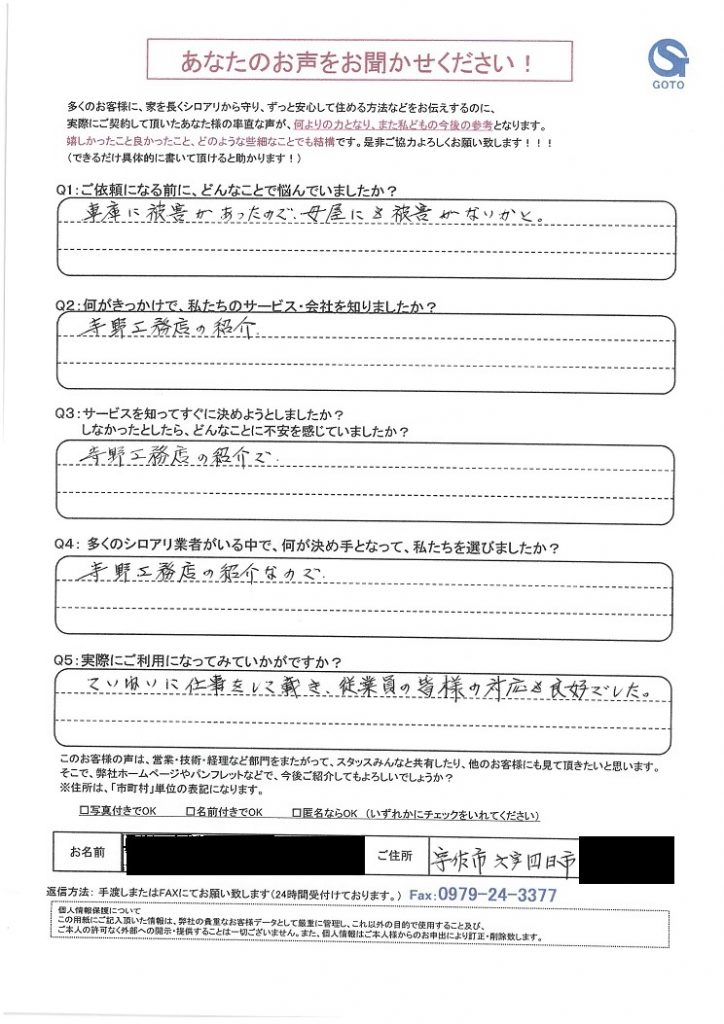 あなたのお声をお聞かせください！
GOTO
多くのお客様に、家を長くシロアリから守り、ずっと安心して住める方法などをお伝えするのに、
実際にご契約して頂いたあなた様の率直な声が、何よりの力となり、また私どもの今後の参考となります。
嬉しかったこと良かったこと、どのような些細なことでも結構です。是非ご協力よろしくお願い致します！！！
（できるだけ具体的に書いて頂けると助かります！）
Q1：ご依頼になる前に、どんなことで悩んでいましたか？
車庫に被害があったので、母屋にも被害がないかと。
Q2：何がきっかけで、私たちのサービス・会社を知りましたか？
寺野工務店の紹介.
Q3：サービスを知ってすぐに決めようとしましたか？
しなかったとしたら、どんなことに不安を感じていましたか？
寺野工務店の紹介で.
Q4： 多くのシロアリ業者がいる中で、何が決め手となって、私たちを選びましたか？
寺野工務店の紹介なので.
Q5：実際にご利用になってみていかがですか？
ていねいに仕事をして戴き、従業員の皆様の対応も良好でした。
このお客様の声は、営業・技術・経理など部門をまたがって、スタッスみんなと共有したり、他のお客様にも見て頂きたいと思います。
そこで、弊社ホームページやパンフレットなどで、今後ご紹介してもよろしいでしょうか？
※住所は、「市町村」単位の表記になります。
□写真付きでOK □名前付きでOK □匿名ならOK （いずれかにチェックをいれてください）
お名前 ご住所 宇佐市大字四日市
返信方法： 手渡しまたはFAXにてお願い致します（24時間受付けております。） Fax：0979-24-3377
個人情報保護について
この用紙にご記入頂いた情報は、弊社の貴重なお客様データとして厳重に管理し、これ以外の目的で使用すること及び、
ご本人の許可なく外部への開示・提供することは一切ございません。また、個人情報はご本人様からのお申出により訂正・削除致します。